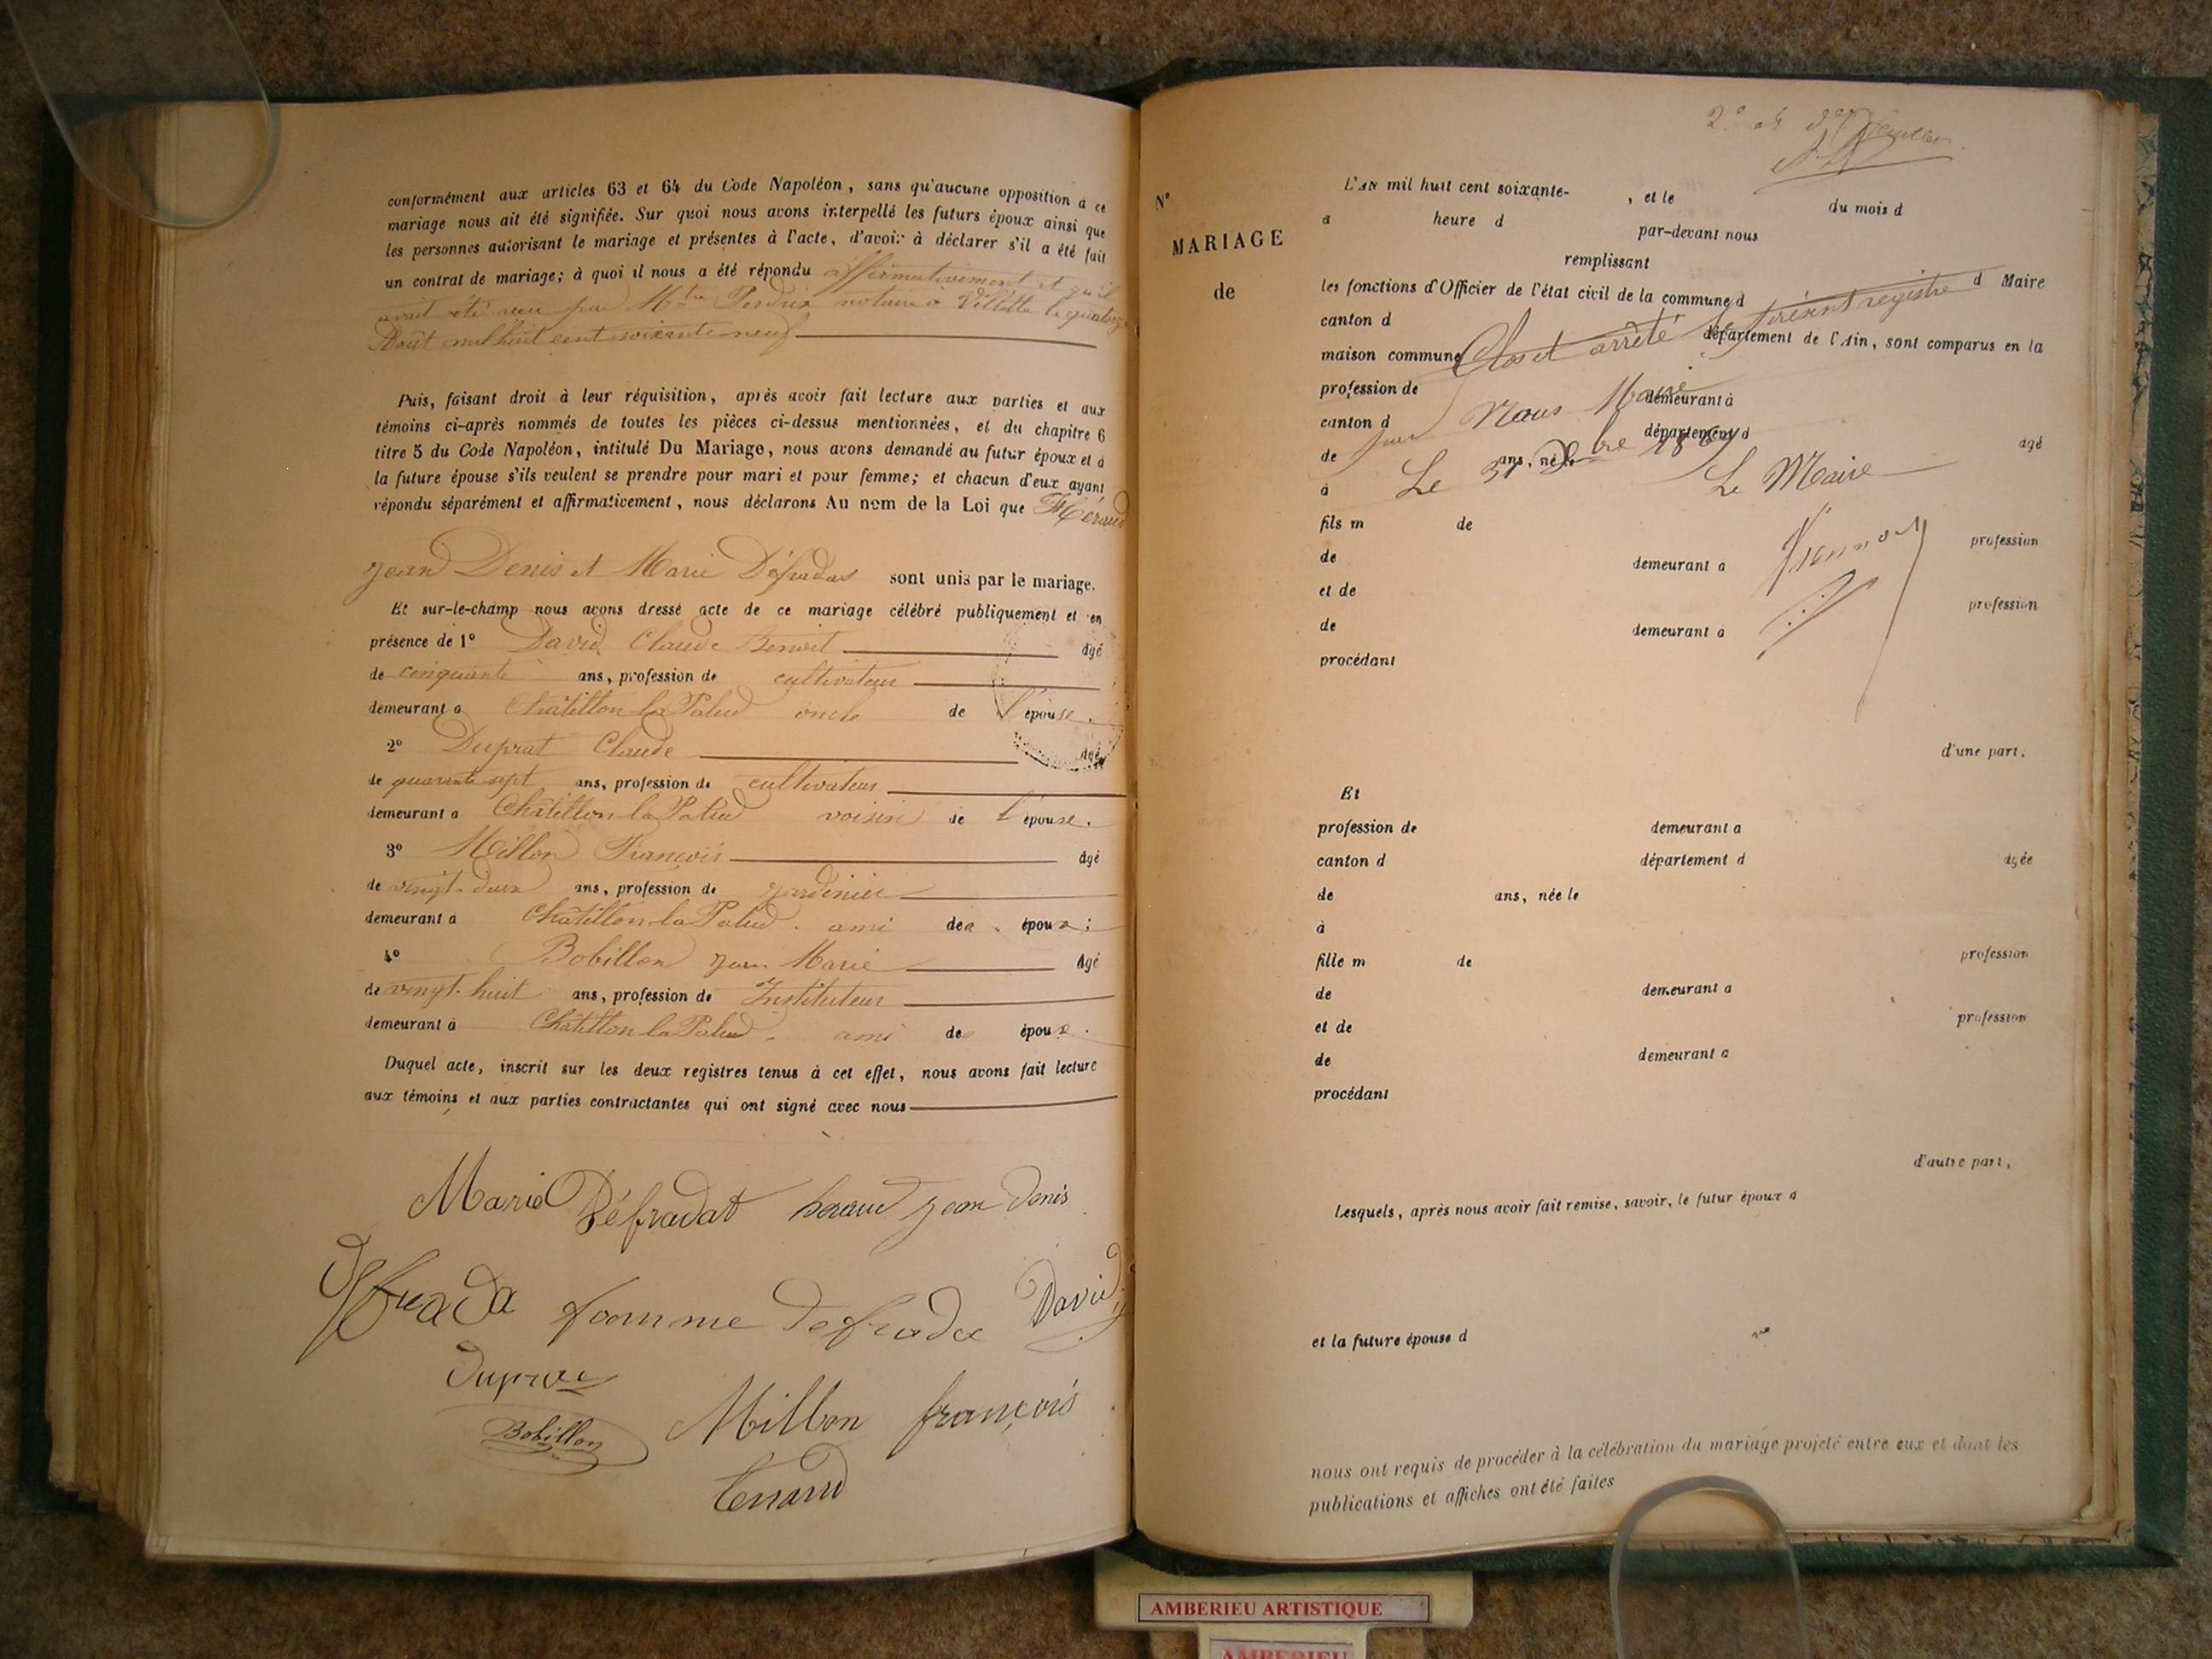 conformément aux articles 63 et 64 du Code Napoléon, sans qu'aucune opposition à ce
mariage nous ait été signifiée. Sur quoi nous avons interpellé les futurs époux ainsi que
les personnes autorisant le mariage et présentes à l'acte, d'avoir à déclarer s'il a été fait
un contrat de mariage; à quoi il nous a été répondu affirmativement et qu'il
avait été reçu par Mtre Perdrix notaire à Villette le quatorze
Août mil huit cent soixante neuf
Puis, faisant droit à leur réquisition, après avoir fait lecture aux parties et aux
témoins ci-après nommés de toutes les pièces ci-dessus mentionnées, et du chapitre 6
titre 5 du Code Napoléon, intitulé Du Mariage, nous avons demandé au futur époux et à
la future épouse s'ils veulent se prendre pour mari et pour femme; et chacun d'eux ayant
répondu séparément et affirmativement, nous déclarons Au nom de la Loi que Héraud
Jean Denis et Marie Défradas sont unis par le mariage.
Et sur-le-champ nous avons dressé acte de ce mariage célébré publiquement et en
présence de 1° David Claude Benoit âgé
de cinquante ans, profession de cultivateur
demeurant à Châtillon la Palud oncle de l'épouse.
2° Duprat Claude âgé
de quarante sept ans, profession de cultivateur
demeurant à Châtillon la Palud voisin de l'épouse.
3° Millon François âgé
de vingt-deux ans, profession de jardinier
demeurant à Châtillon la Palud. ami des époux;
4° Bobillon Jean Marie âgé
de vingt-huit ans, profession de Instituteur
demeurant à Châtillon la Palud. ami des époux.
Duquel acte, inscrit sur les deux registres tenus à cet effet, nous avons fait lecture
aux témoins et aux parties contractantes qui ont signé avec nous
Marie Défradat heraud jean denis
femme defrada David
Duprat
Millon françois
Bobillon
2e et der
N°
MARIAGE
de
L'AN mil huit cent soixante- , et le du mois d
à heure d par-devant nous
remplissant
les fonctions d'Officier de l'état civil de la commune d d Maire
canton d
Clos et arrêté le présent registre
maison commune département de l'Ain, sont comparus en la
profession de demeurant à
par Nous Maire
canton d département d
de ans, né le âgé
Le 31 Xbre 1869 Le Maire
à
fils m de profession
de demeurant à
et de profession
de demeurant à
procédant
d'une part;
Et
profession de demeurant à
canton d département d âgée
de ans, née le
à
fille m de profession
de demeurant à
et de profession
de demeurant à
procédant
d'autre part;
Lesquels, après nous avoir fait remise, savoir, le futur époux d
et la future épouse d
nous ont requis de procéder à la célébration du mariage projeté entre eux et dont les
publications et affiches ont été faites
AMBERIEU ARTISTIQUE
AMBERIEU